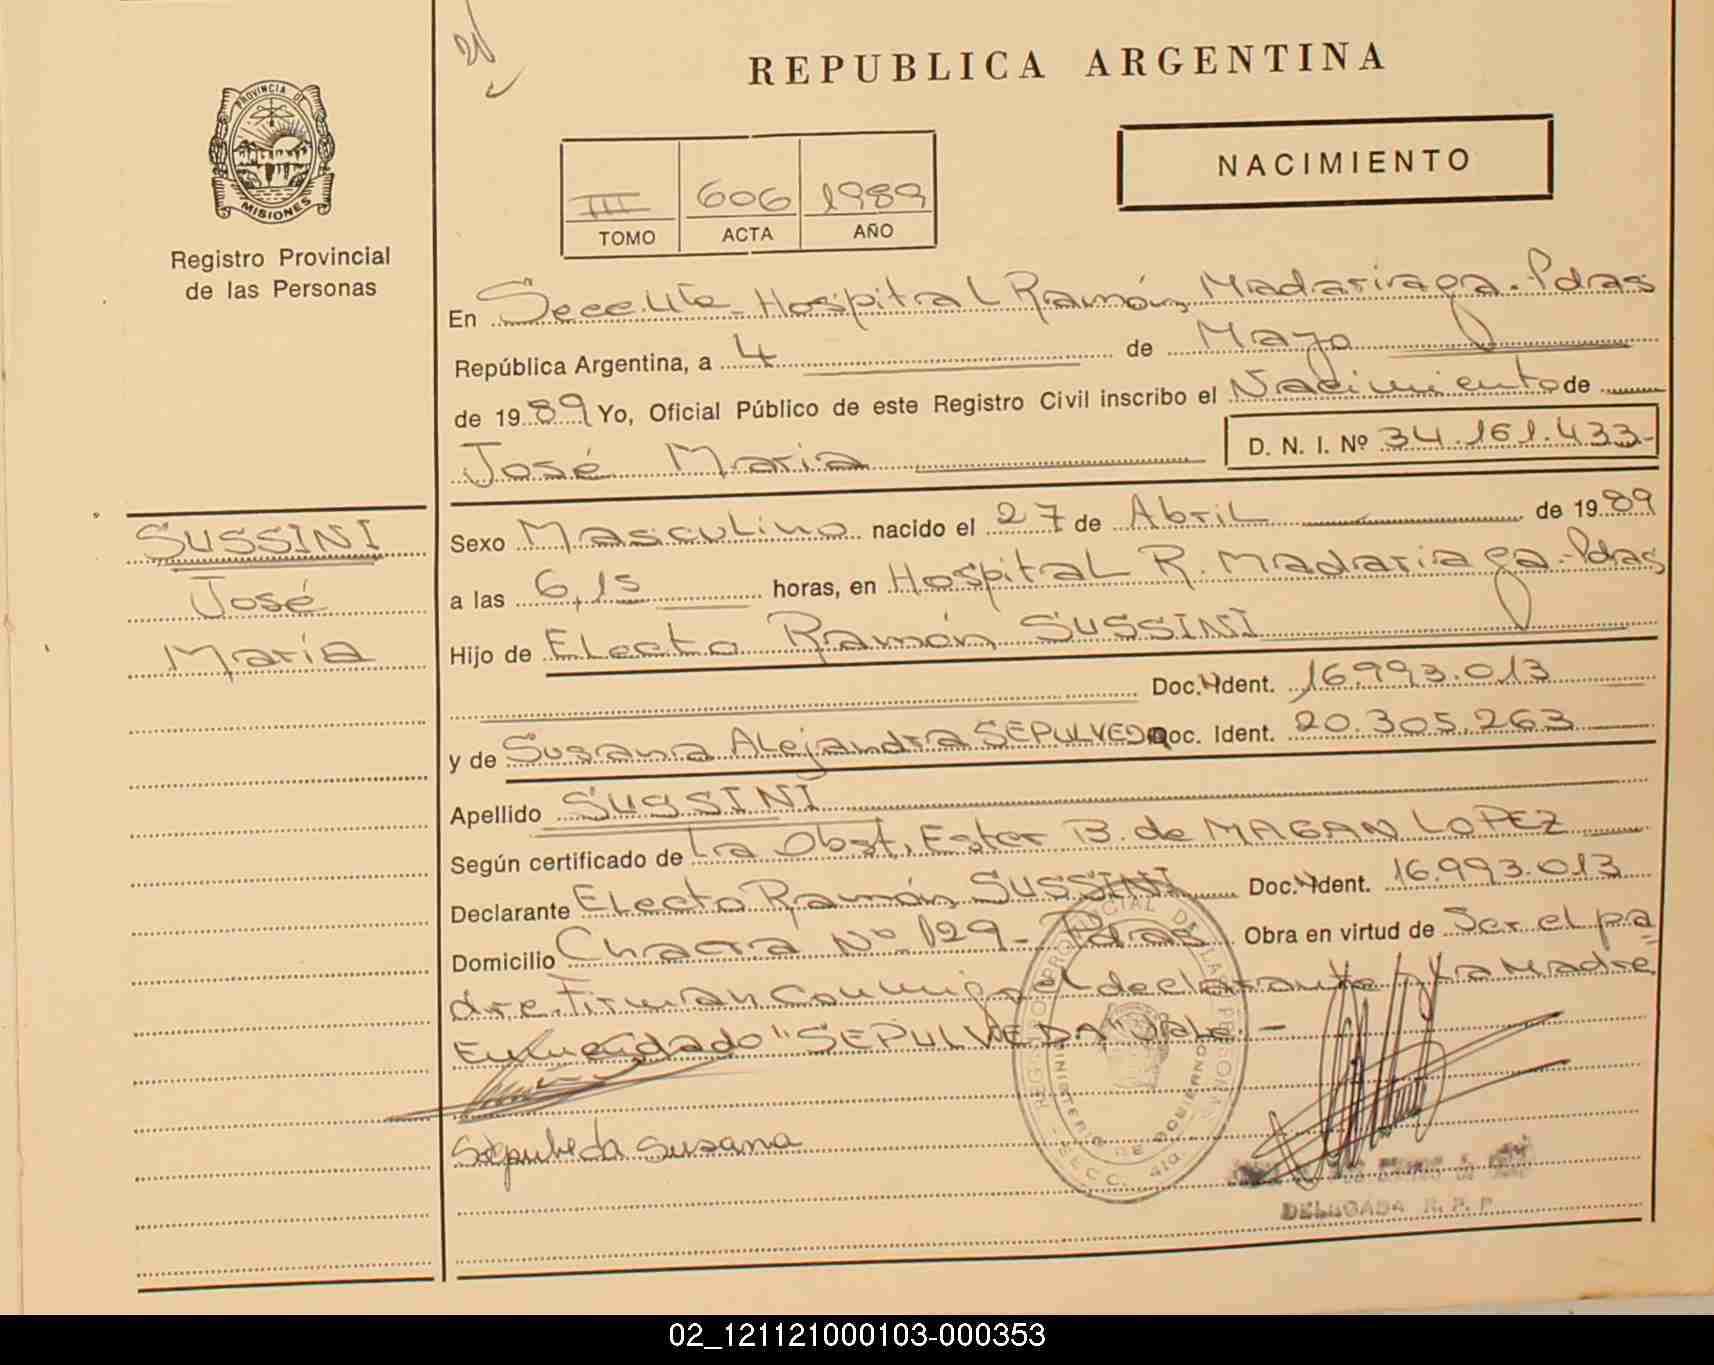 REPUBLICA ARGENTINA
PROVINCIA DE
MISIONES
Registro Provincial
de las Personas
NACIMIENTO
III 606 1989
TOMO ACTA AÑO
En Secc. 4ta - Hospital Ramón Madariaga.- Pdas
República Argentina, a 4 de Mayo
de 1989 Yo, Oficial Público de este Registro Civil inscribo el Nacimiento de
José María D. N. I. Nº 34.161.433-
SUSSINI
José
María
Sexo Masculino nacido el 27 de Abril de 1989
a las 6,15 horas, en Hospital R. Madariaga.- Pdas
Hijo de Electo Ramón SUSSINI
Doc. Ident. 16.993.013
y de Susana Alejandra SEPULVEDA Doc. Ident. 20.305.263
Apellido SUSSINI
Según certificado de La Obst. Ester B. de MAGAN LOPEZ
Declarante Electo Ramón SUSSINI Doc. Ident. 16.993.013
Domicilio Chacra Nº 129 - Pdas Obra en virtud de Ser el pa
dre. Firman conmigo el declarante y la Madre
Enmendado "SEPULVEDA" Vale.-
Sepulveda Susana
REGISTRO PROVINCIAL DE LAS PERSONAS
MINISTERIO DE GOBIERNO
SECC. 4ta
DELEGADA R. P. P.
02_121121000103-000353